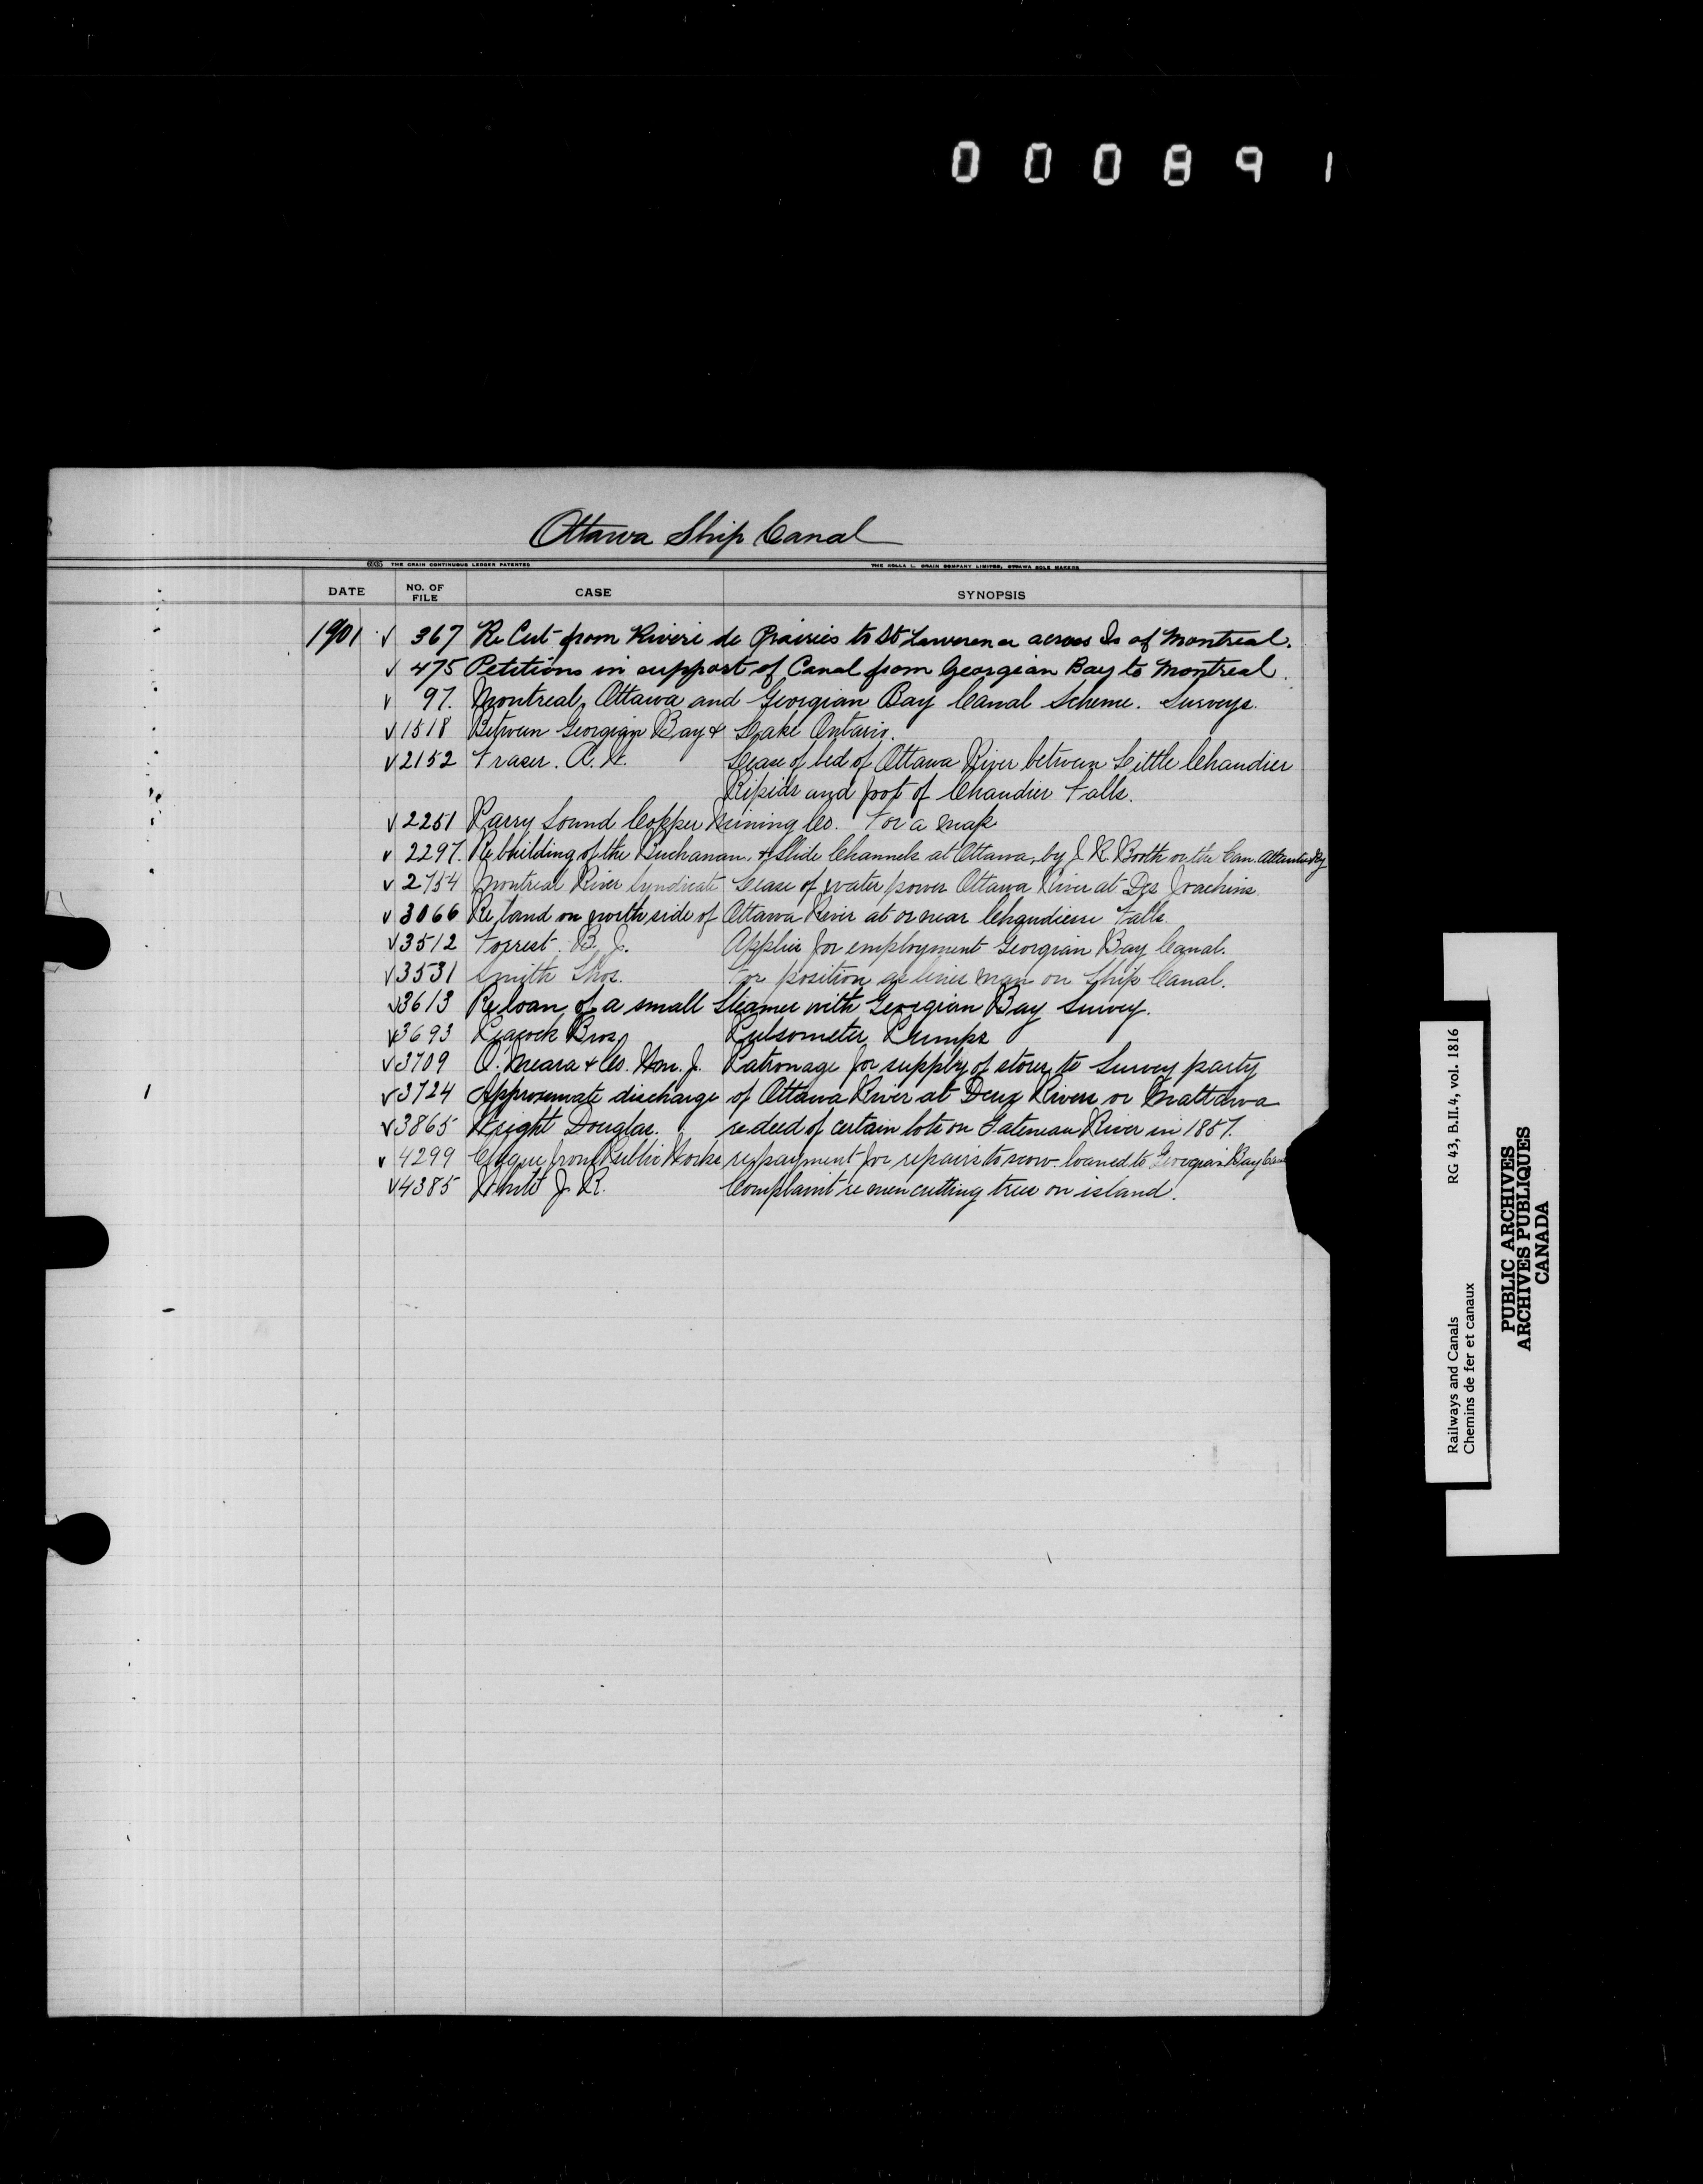 000891
Ottawa Ship Canal
THE CRAIN CONTINUOUS LEDGER PATENTED THE ROLLA L. CRAIN COMPANY LIMITED, OTTAWA SOLE MAKERS
DATE NO. OF FILE CASE SYNOPSIS
1901 √ 367 Re Cut from Riveri de Prairies to St Lawerence across Is of Montreal.
√ 475 Petitions in support of Canal from Georgian Bay to Montreal.
√ 97. Montreal, Ottawa and Georgian Bay Canal Scheme. Surveys.
√ 1518 Between Georgian Bay & Lake Ontario.
√ 2152 Fraser. A. W. Lease of bed of Ottawa River between Little Chaudier
Ripids and foot of Chaudier Falls.
√ 2251 Parry Sound Copper Mining Co. For a map
√ 2297. Rebuilding of the Buchanan & Slide Channels at Ottawa, by J. R. Booth or the Can. Atlantic Ry
√ 2754 Montreal River Syndicate Lease of water power Ottawa River at Des Joachins.
√ 3066 Re land on north side of Ottawa River at or near Chaudiere Falls.
√ 3512 Forrest. B. J. Applies for employment Georgian Bay Canal.
√ 3531 Smith Thos. For position as lines man on Ship Canal.
√ 3613 Re loan of a small Steamer with Georgian Bay Survey.
√ 3693 Peacock Bros. Pulsometer Pumps
√ 3709 O. Meara & Co. Wm. J. Patronage for supply of stores to Survey party
√ 3724 Approximate discharge of Ottawa River at Deux Rivers or Mattawa
√ 3865 Wright Douglas. re deed of certain lots on Gatineau River in 1857.
√ 4299 Cheque from Public Works re payment for repairs to scow loaned to Georgian Bay Canal
√ 4385 White J. R. Complaint re men cutting trees on island.
Railways and Canals RG 43, B.II.4, vol. 1816
Chemins de fer et canaux
PUBLIC ARCHIVES
ARCHIVES PUBLIQUES
CANADA